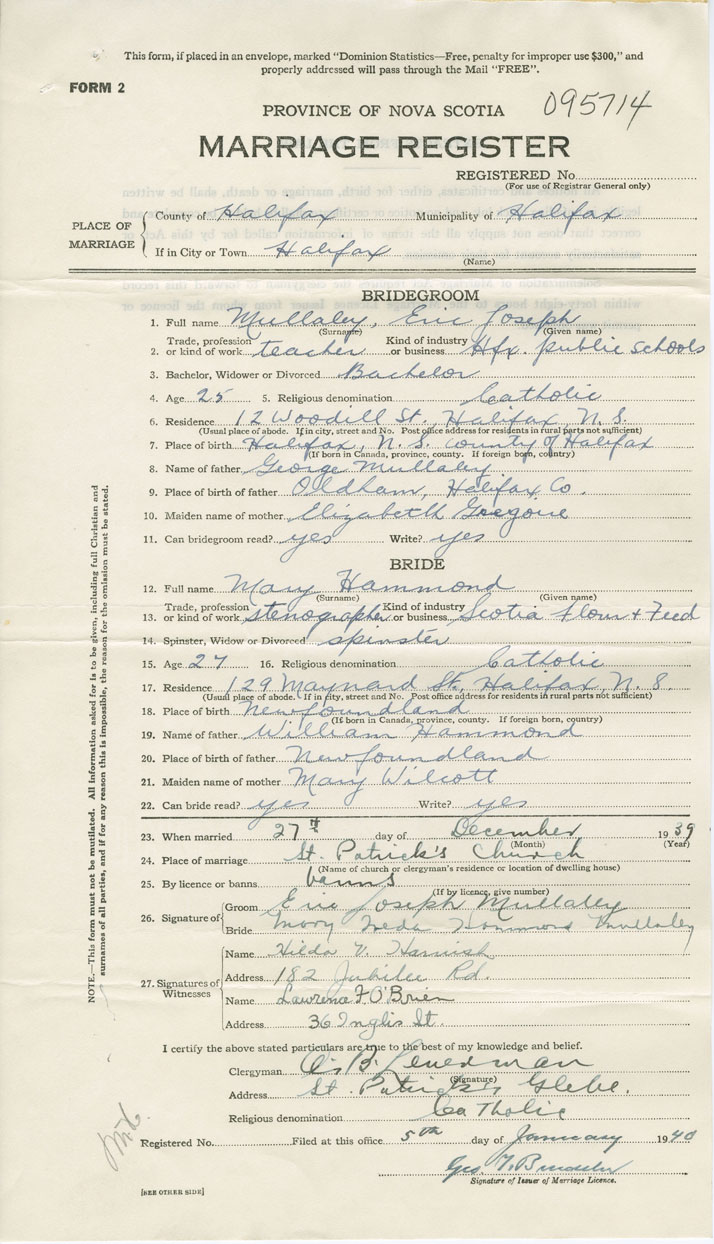 This form, if placed in an envelope, marked "Dominion Statistics—Free, penalty for improper use $300," and
properly addressed will pass through the Mail "FREE".
FORM 2
PROVINCE OF NOVA SCOTIA 095714
MARRIAGE REGISTER
REGISTERED No.
(For use of Registrar General only)
PLACE OF MARRIAGE
County of Halifax Municipality of Halifax
If in City or Town Halifax
(Name)
BRIDEGROOM
1. Full name Mullaley, Eric Joseph
(Surname) (Given name)
2. Trade, profession or kind of work teacher Kind of industry or business Hfx. public schools
3. Bachelor, Widower or Divorced Bachelor
4. Age 25 5. Religious denomination Catholic
6. Residence 12 Woodill St., Halifax, N. S.
(Usual place of abode. If in city, street and No. Post office address for residents in rural parts not sufficient)
7. Place of birth Halifax, N. S. county of Halifax
(If born in Canada, province, county. If foreign born, country)
8. Name of father George Mullaley
9. Place of birth of father Oldham, Halifax Co.
10. Maiden name of mother Elizabeth Gregoire
11. Can bridegroom read? yes Write? yes
BRIDE
12. Full name Mary Hammond
(Surname) (Given name)
13. Trade, profession or kind of work stenographer Kind of industry or business Scotia Flour + Feed
14. Spinster, Widow or Divorced spinster
15. Age 27 16. Religious denomination Catholic
17. Residence 129 Maynard St., Halifax, N. S.
(Usual place of abode. If in city, street and No. Post office address for residents in rural parts not sufficient)
18. Place of birth Newfoundland
(If born in Canada, province, county. If foreign born, country)
19. Name of father William Hammond
20. Place of birth of father Newfoundland
21. Maiden name of mother Mary Wilcott
22. Can bride read? yes Write? yes
23. When married 27th day of December 1939
(Month) (Year)
24. Place of marriage St. Patrick's Church
(Name of church or clergyman's residence or location of dwelling house)
25. By licence or banns banns
(If by licence, give number)
26. Signature of
Groom Eric Joseph Mullaley
Bride Mary Hammond Mullaley
27. Signatures of Witnesses
Name Hilda V. Harnish
Address 182 Jubilee Rd.
Name Lawrence F. O'Brien
Address 36 Inglis St.
I certify the above stated particulars are true to the best of my knowledge and belief.
Clergyman
(Signature)
Address St. Patrick's Glebe.
Religious denomination Catholic
Registered No. Filed at this office 5th day of January 1940
Geo.
Signature of Issuer of Marriage Licence.
[SEE OTHER SIDE]
NOTE.—This form must not be mutilated. All information asked for is to be given, including full Christian and
surnames of all parties, and if for any reason this is impossible, the reason for the omission must be stated.